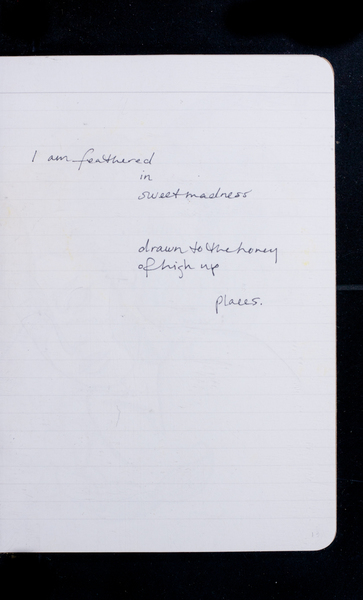 I am feathered
in
sweet madness
drawn to the honey
of high up
places.